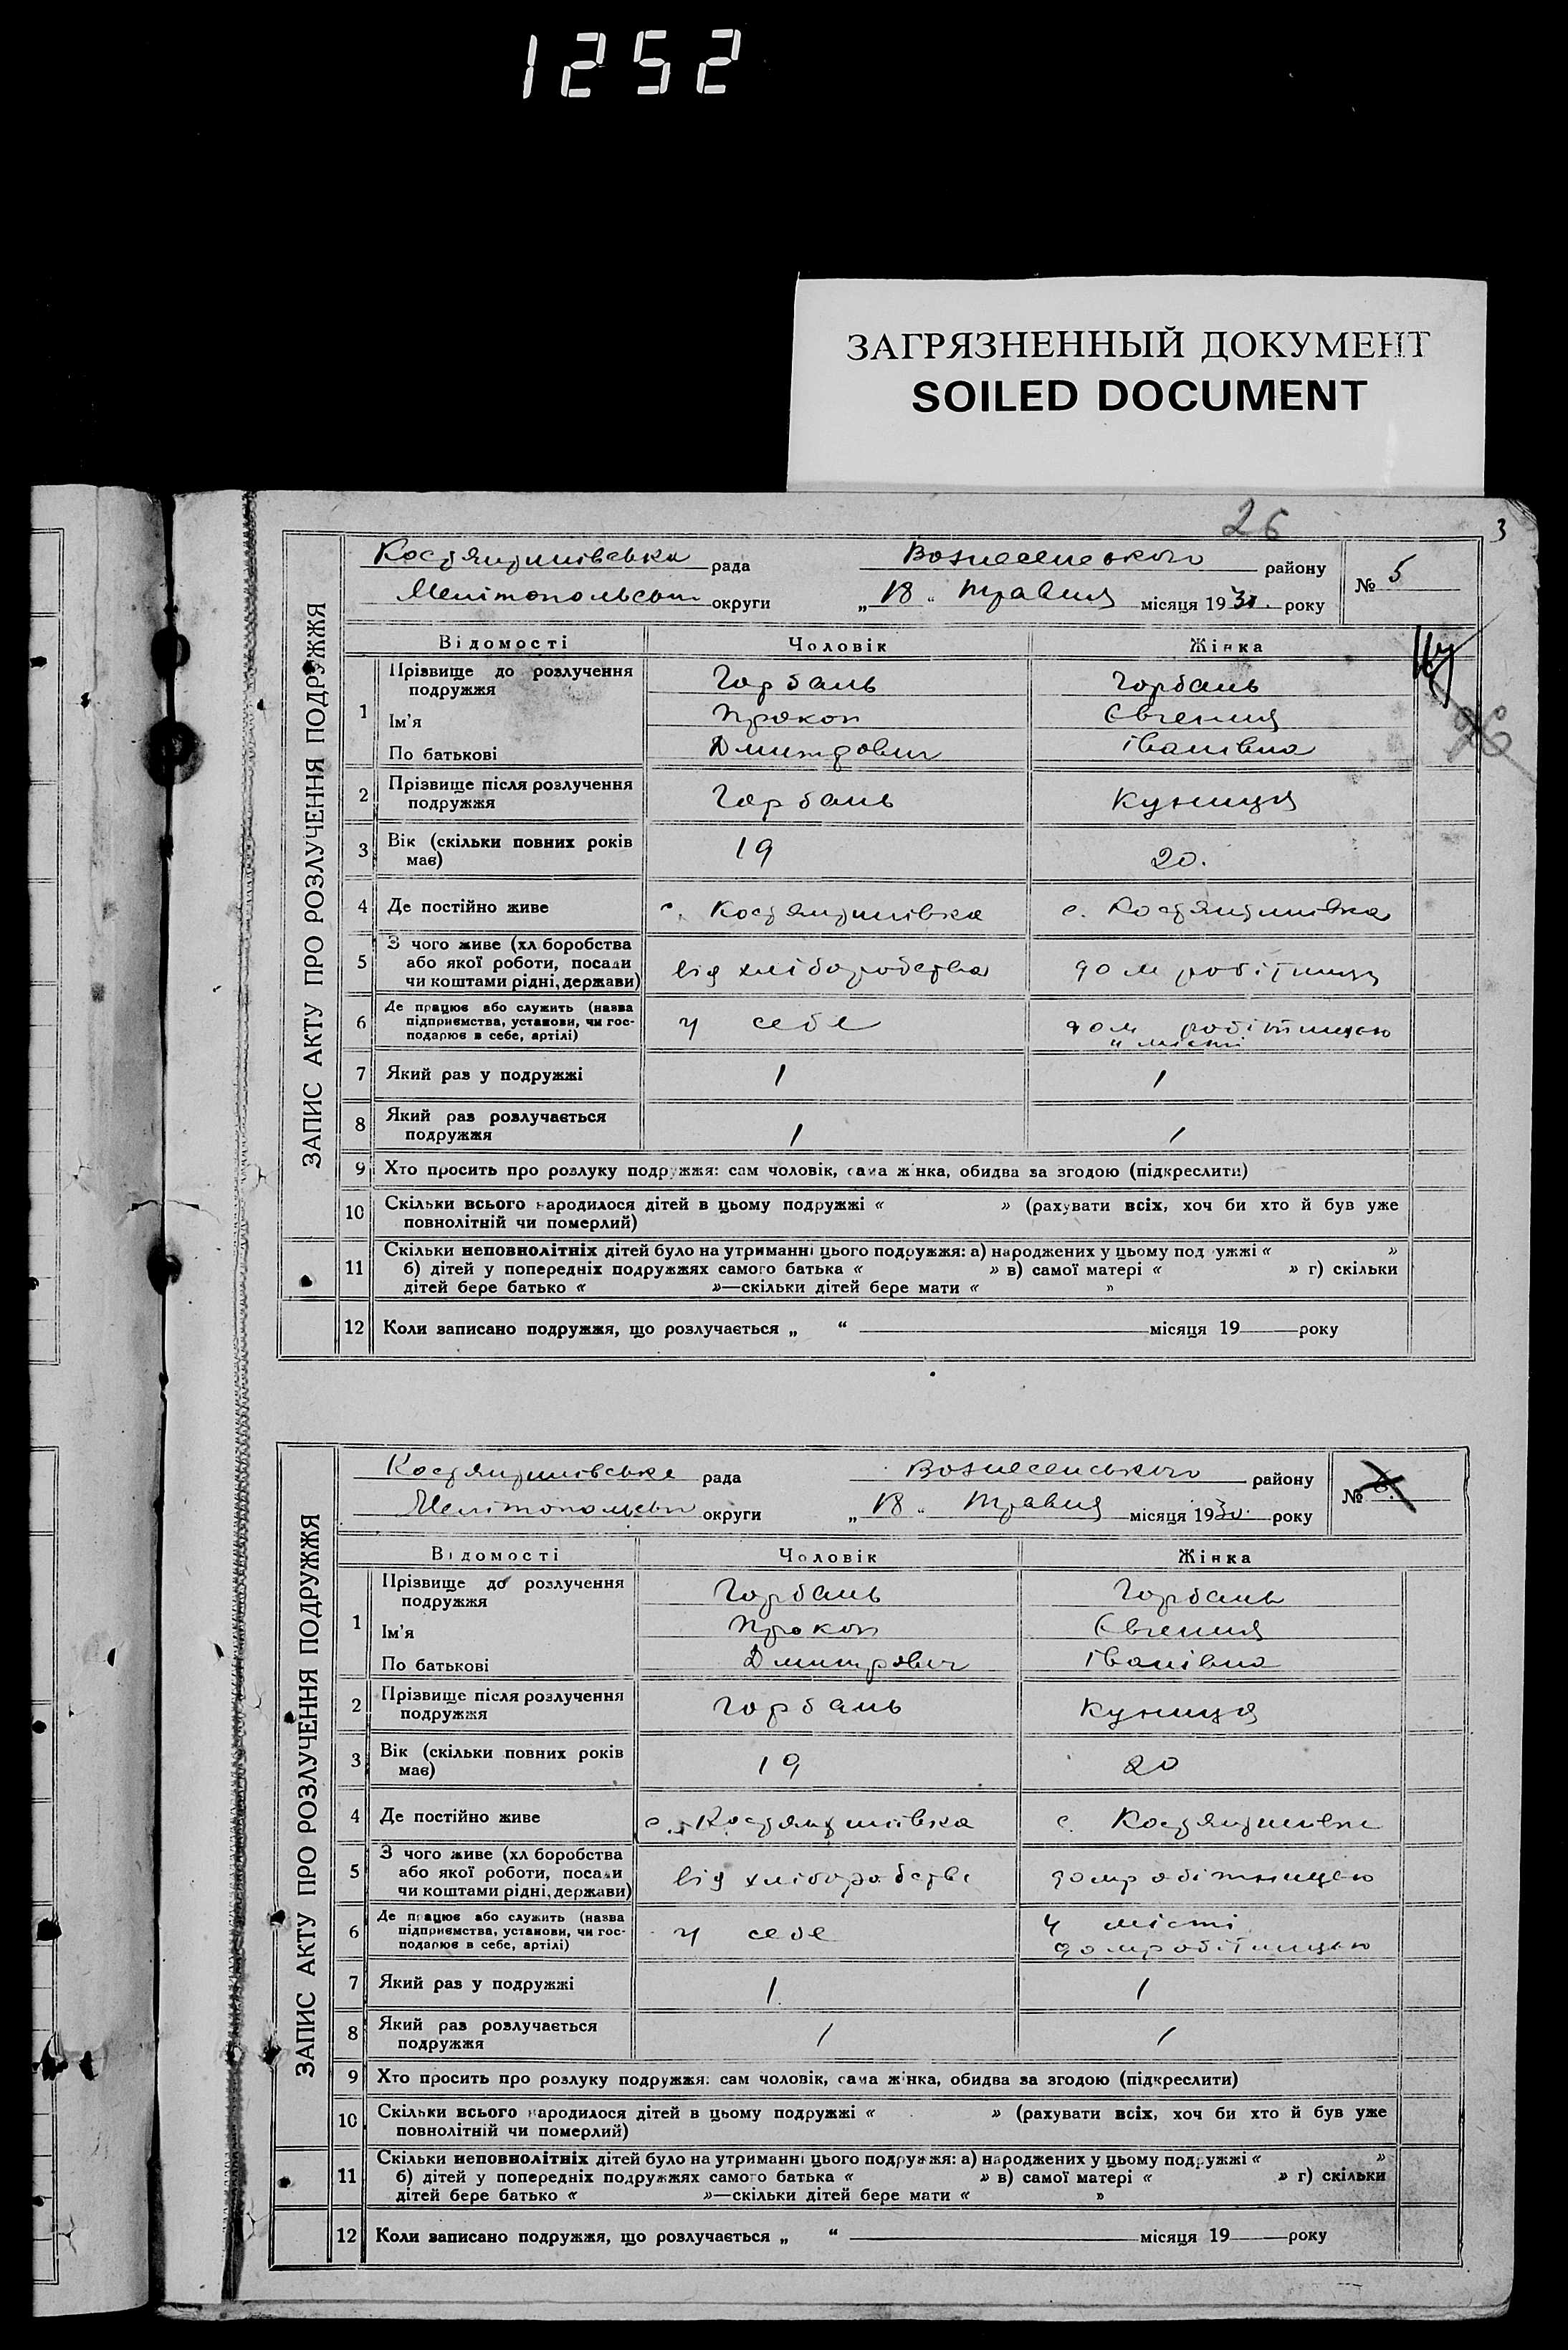 1252
ЗАГРЯЗНЕННЫЙ ДОКУМЕНТ
SOILED DOCUMENT
26
3
ЗАПИС АКТУ ПРО РОЗЛУЧЕННЯ ПОДРУЖЖЯ
Костянтинівська рада Вознесенського району № 5
Мелітопольськ округи „ 18 " травня місяця 1930. року
Відомості Чоловік Жінка
1 Прізвище до розлучення подружжя Горбань Горбань
Ім'я Прокоп Євгения
По батькові Дмитрович Іванівна
2 Прізвище після розлучення подружжя Горбань Куниця
3 Вік (скільки повних років має) 19 20.
4 Де постійно живе с. Костянтинівка с. Костянтинівка
5 З чого живе (хліборобства або якої роботи, посади чи коштами рідні, держави) від хліборобства дом робітниця
6 Де працює або служить (назва підприємства, установи, чи господарює в себе, артілі) у себе дом робітницею у місті
7 Який раз у подружжі 1 1
8 Який раз розлучається подружжя 1 1
9 Хто просить про розлуку подружжя: сам чоловік, сама жінка, обидва за згодою (підкреслити)
10 Скільки всього народилося дітей в цьому подружжі « » (рахувати всіх, хоч би хто й був уже
повнолітній чи померлий)
11 Скільки неповнолітніх дітей було на утриманні цього подружжя: а) народжених у цьому подружжі « »
б) дітей у попередніх подружжях самого батька « » в) самої матері « » г) скільки
дітей бере батько « »—скільки дітей бере мати « »
12 Коли записано подружжя, що розлучається „ “ місяця 19 року
ЗАПИС АКТУ ПРО РОЗЛУЧЕННЯ ПОДРУЖЖЯ
Костянтинівська рада Вознесенського району №
Мелітопольськ округи „ 18 " травня місяця 1930. року
Відомості Чоловік Жінка
1 Прізвище до розлучення подружжя Горбань Горбань
Ім'я Прокоп Євгения
По батькові Дмитрович Іванівна
2 Прізвище після розлучення подружжя Горбань Куниця
3 Вік (скільки повних років має) 19 20
4 Де постійно живе с. Костянтинівка с. Костянтинівка
5 З чого живе (хліборобства або якої роботи, посади чи коштами рідні, держави) від хліборобства домробітницею
6 Де працює або служить (назва підприємства, установи, чи господарює в себе, артілі) у себе у місті домробітницею
7 Який раз у подружжі 1 1
8 Який раз розлучається подружжя 1 1
9 Хто просить про розлуку подружжя: сам чоловік, сама жінка, обидва за згодою (підкреслити)
10 Скільки всього народилося дітей в цьому подружжі « » (рахувати всіх, хоч би хто й був уже
повнолітній чи померлий)
11 Скільки неповнолітніх дітей було на утриманні цього подружжя: а) народжених у цьому подружжі « »
б) дітей у попередніх подружжях самого батька « » в) самої матері « » г) скільки
дітей бере батько « »—скільки дітей бере мати « »
12 Коли записано подружжя, що розлучається „ “ місяця 19 року